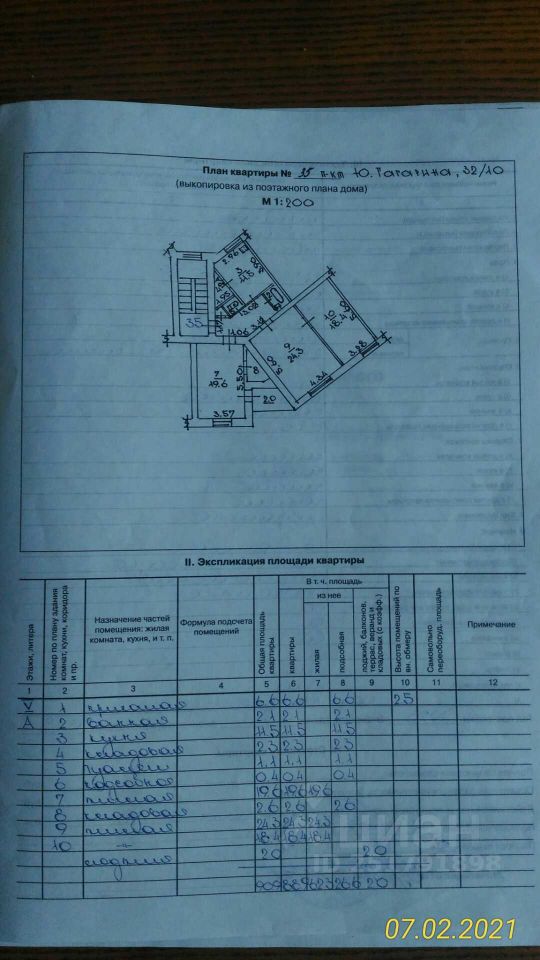 План квартиры № 35 п-кт Ю. Гагарина, 32/10
(выкопировка из поэтажного плана дома)
М 1: 200
2.96
3
11.5
35
1.06
3.12
10
18.4
9
24.3
3.28
7
19.6
5.50
8
4.34
2.0
3.57
II. Экспликация площади квартиры
Этажи, литера
Номер по плану здания комнат, кухни, коридора и пр.
Назначение частей помещения: жилая комната, кухня, и т. п.
Формула подсчета помещений
Общая площадь квартиры
В т. ч. площадь
квартиры
из нее
жилая
подсобная
лоджий, балконов, террас, веранд и кладовых (с коэфф.)
Высота помещений по вн. обмеру
Самовольно переоборуд. площадь
Примечание
1 2 3 4 5 6 7 8 9 10 11 12
V 1 прихожая 6.6 6.6 6.6 2.5
А 2 ванная 2.1 2.1 2.1
3 кухня 11.5 11.5 11.5
4 кладовая 2.3 2.3 2.3
5 туалет 1.1 1.1 1.1
6 подсобная 0.4 0.4 0.4
7 жилая 19.6 19.6 19.6
8 кладовая 2.6 2.6 2.6
9 жилая 24.3 24.3 24.3
10 -"- 18.4 18.4 18.4
лоджия 2.0 2.0
90.9 88.9 62.3 26.6 2.0
ЦИАН
07.02.2021